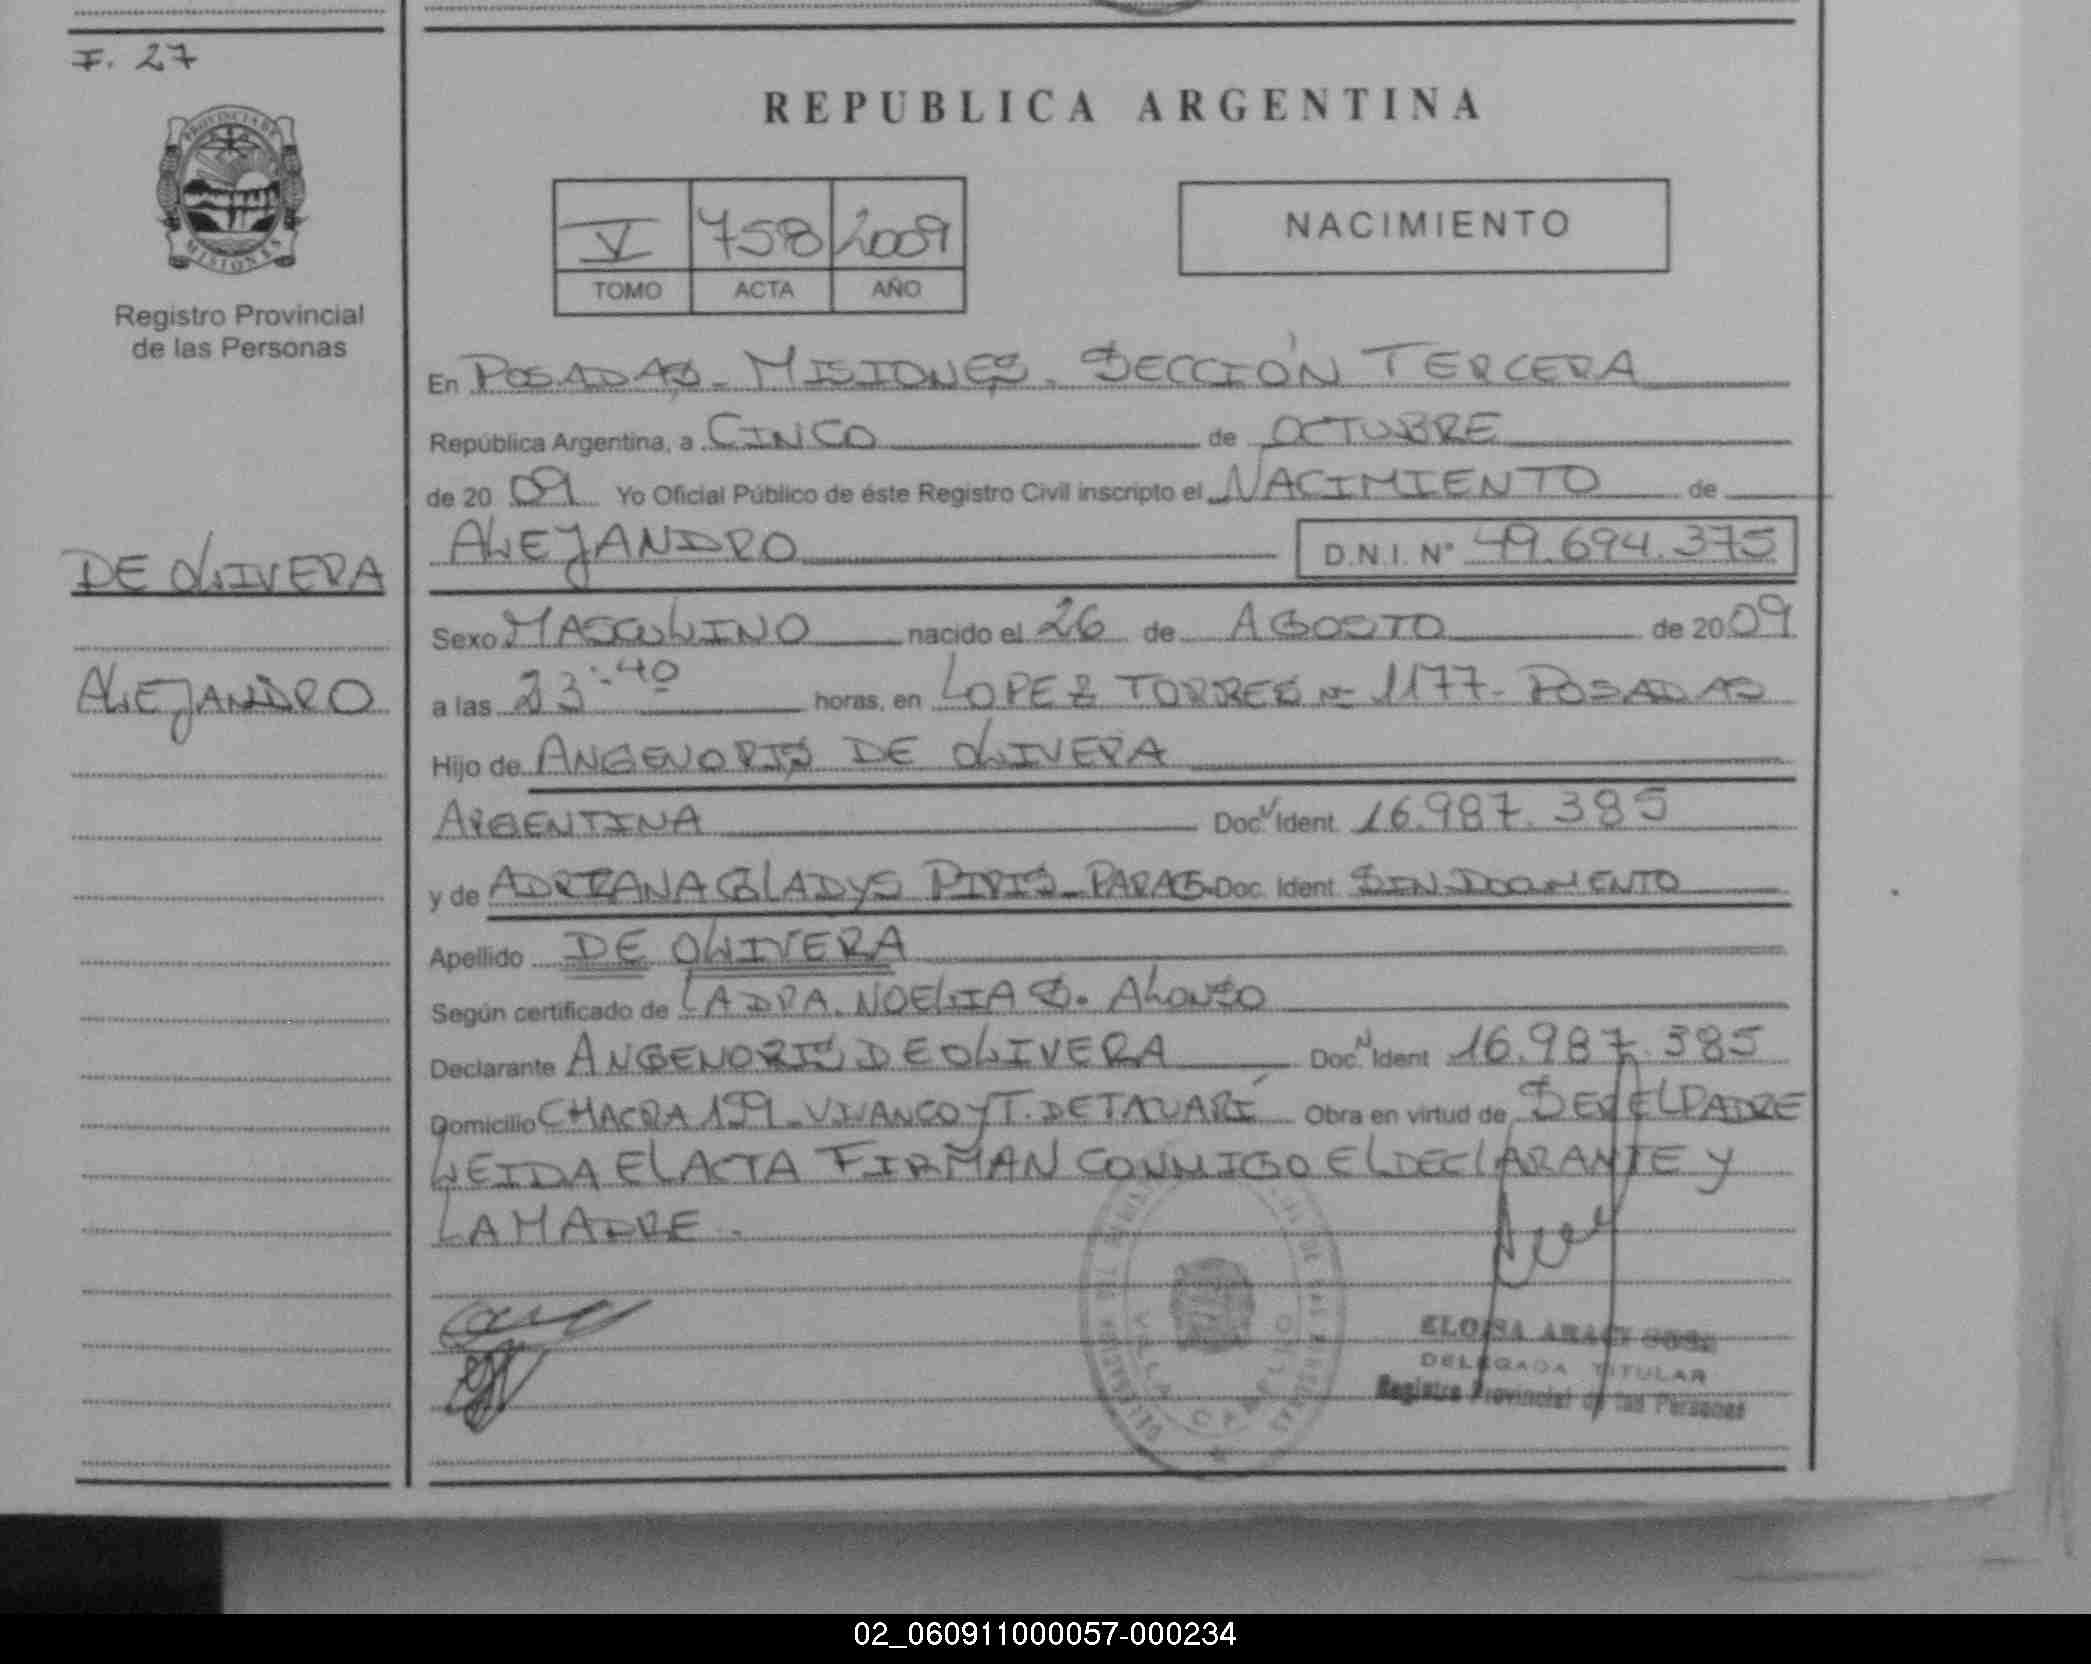 F. 27
PROVINCIA DE
MISIONES
Registro Provincial
de las Personas
DE OLIVERA
ALEJANDRO
REPUBLICA ARGENTINA
V 758 2009
TOMO ACTA AÑO
NACIMIENTO
En POSADAS. MISIONES. SECCIÓN TERCERA
República Argentina, a CINCO de OCTUBRE
de 2009 Yo Oficial Público de éste Registro Civil inscripto el NACIMIENTO de
ALEJANDRO D.N.I. N° 49.694.375
Sexo MASCULINO nacido el 26 de AGOSTO de 2009
a las 23:40 horas, en LOPEZ TORRES N° 1177. POSADAS
Hijo de ANGENORIS DE OLIVERA
ARGENTINA Doc. Ident. 16.987.385
y de ADRIANA GLADYS PIRIS - PARAG. Doc. Ident. SIN DOCUMENTO
Apellido DE OLIVERA
Según certificado de LA DRA. NOELIA S. ALONSO
Declarante ANGENORIS DE OLIVERA Doc. Ident 16.987.385
Domicilio CHACRA 159 - VIVANCO Y T. DE Obra en virtud de SER EL PADRE
LEIDA EL ACTA FIRMAN CONMIGO EL DECLARANTE Y
LA MADRE.
VILLA CABELLO
ELOISA
DELEGADA TITULAR
Registro Provincial de las Personas
02_060911000057-000234